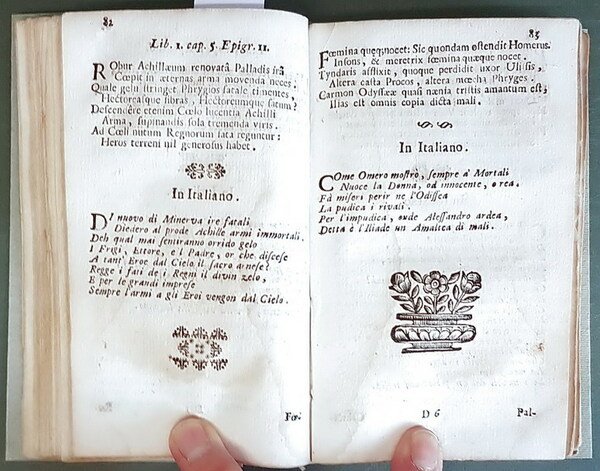 82
Lib. 1. cap. 5. Epigr. 11.
RObur Achillæum renovatâ Palladis irâ
Cœpit in æternas arma movenda neces.
Quale gelu stringet Phrygios fatale timentes,
Hectoreasque fibras, Hectoreumque satum?
Descendêre etenim Cœlo lucentia Achilli
Arma, supinandis sola tremenda viris.
Ad Cœli nutum Regnorum fata reguntur:
Heros terreni nil generosus habet.
In Italiano.
DI nuovo di Minerva ire fatali
Diedero al prode Achille armi immortali.
Deh qual mai sentiranno orrido gelo
I Frigi, Ettore, e l Padre, or che discese
A tant' Eroe dal Cielo il sacro arnese?
Regge i fati de i Regni il divin zelo,
E per le grandi imprese
Sempre l armi a gli Eroi vengon dal Cielo.
Fœ-
83
FOEmina quęq; nocet: Sic quondam ostendit Homerus.
Insons, & meretrix fœmina quæque nocet.
Tyndaris afflixit, quoque perdidit uxor Ulissis,
Altera casta Procos, altera mœcha Phryges.
Carmon Odyssææ quasi nænia tristis amantum est;
Ilias est omnis copia dicta mali.
In Italiano.
COme Omero mostrò, sempre a' Mortali
Nuoce la Donna, od innocente, o rea.
Fà miseri perir ne l'Odissea
La pudica i rivali.
Per l'impudica, onde Alessandro ardea,
Detta è l'Iliade un Amaltea di mali.
D 6
Pal-